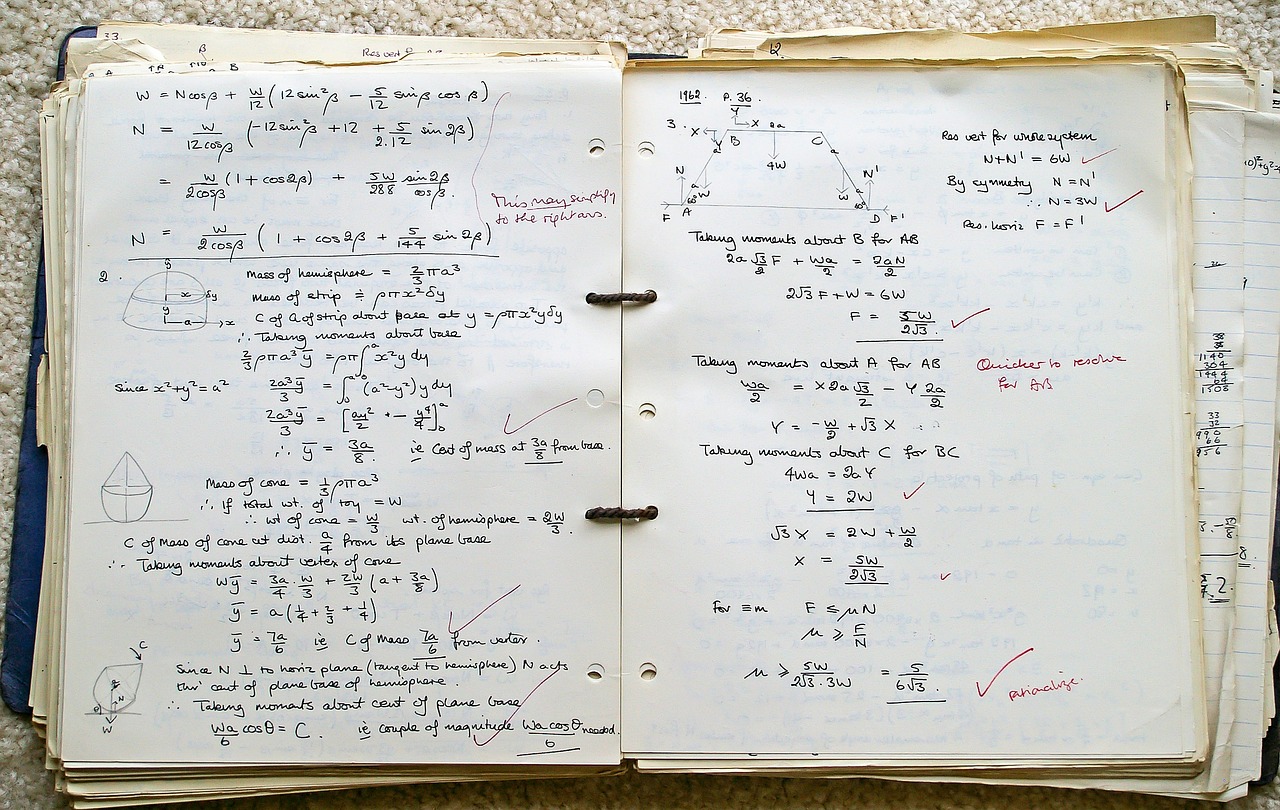 33.
β
Res vert
B
W = Ncosβ + W/12 (12sin²β − 5/12 sinβ cosβ)
N = W/12cosβ (−12sin²β + 12 + 5/2.12 sin2β)
= W/2cosβ (1 + cos2β) + 5W/288 sin2β/cosβ.
This may simplify
to the right ans.
N = W/2cosβ (1 + cos2β + 5/144 sin2β)
2.
y
x
δy
y
a
x
Mass of hemisphere = 2/3 πa³
Mass of strip ≑ ρπx²δy
C of G of strip about base at y = ρπx²yδy
∴ Taking moments about base
2/3 ρπa³ȳ = ρπ∫₀ᵃ x²y dy
Since x²+y² = a² 2a³ȳ/3 = ∫₀ᵃ (a²−y²) y dy
2a³ȳ/3 = [ay²/2 − y⁴/4]₀ᵃ
∴ ȳ = 3a/8 ie Cent of mass at 3a/8 from base.
Mass of cone = 1/3 ρπa³
∴ If total wt. of toy = W
∴ wt of cone = W/3 wt. of hemisphere = 2W/3.
C of Mass of cone at dist. a/4 from its plane base
∴ Taking moments about vertex of cone
Wȳ = 3a/4 . W/3 + 2W/3 (a + 3a/8)
ȳ = a(1/4 + 2/3 + 1/4)
ȳ = 7a/6 ie C of Mass 7a/6 from vertex.
C
N
θ
W
Since N ⊥ to horiz plane (tangent to hemisphere) N acts
thro' cent of plane base of hemisphere.
∴ Taking moments about cent of plane base
Wa/6 cosθ = C. ie couple of magnitude Wa cosθ/6 needed.
12.
1962. P. 36.
3.
Y
X
2a
X
B
C
Y
a
a
4W
N
N'
a
a
W
W
60°
60°
F
A
D
F'
Res vert for whole system
N+N' = 6W
By symmetry N = N'
∴ N = 3W
Res. horiz F = F'
Taking moments about B for AB
2a √3/2 F + Wa/2 = 2aN/2
2√3 F + W = 6W
F = 5W/2√3.
Taking moments about A for AB
Quicker to resolve
for AB
Wa/2 = X 2a √3/2 − Y 2a/2
Y = −W/2 + √3 X
Taking moments about C for BC
4Wa = 2aY
Y = 2W
√3 X = 2W + W/2
X = 5W/2√3
For ≡m F ≤ μN
μ ≥ F/N
μ ≥ 5W/2√3.3W = 5/6√3.
rationalize.
38
38
1140
304
1444
64
1508
33
32
990
66
956